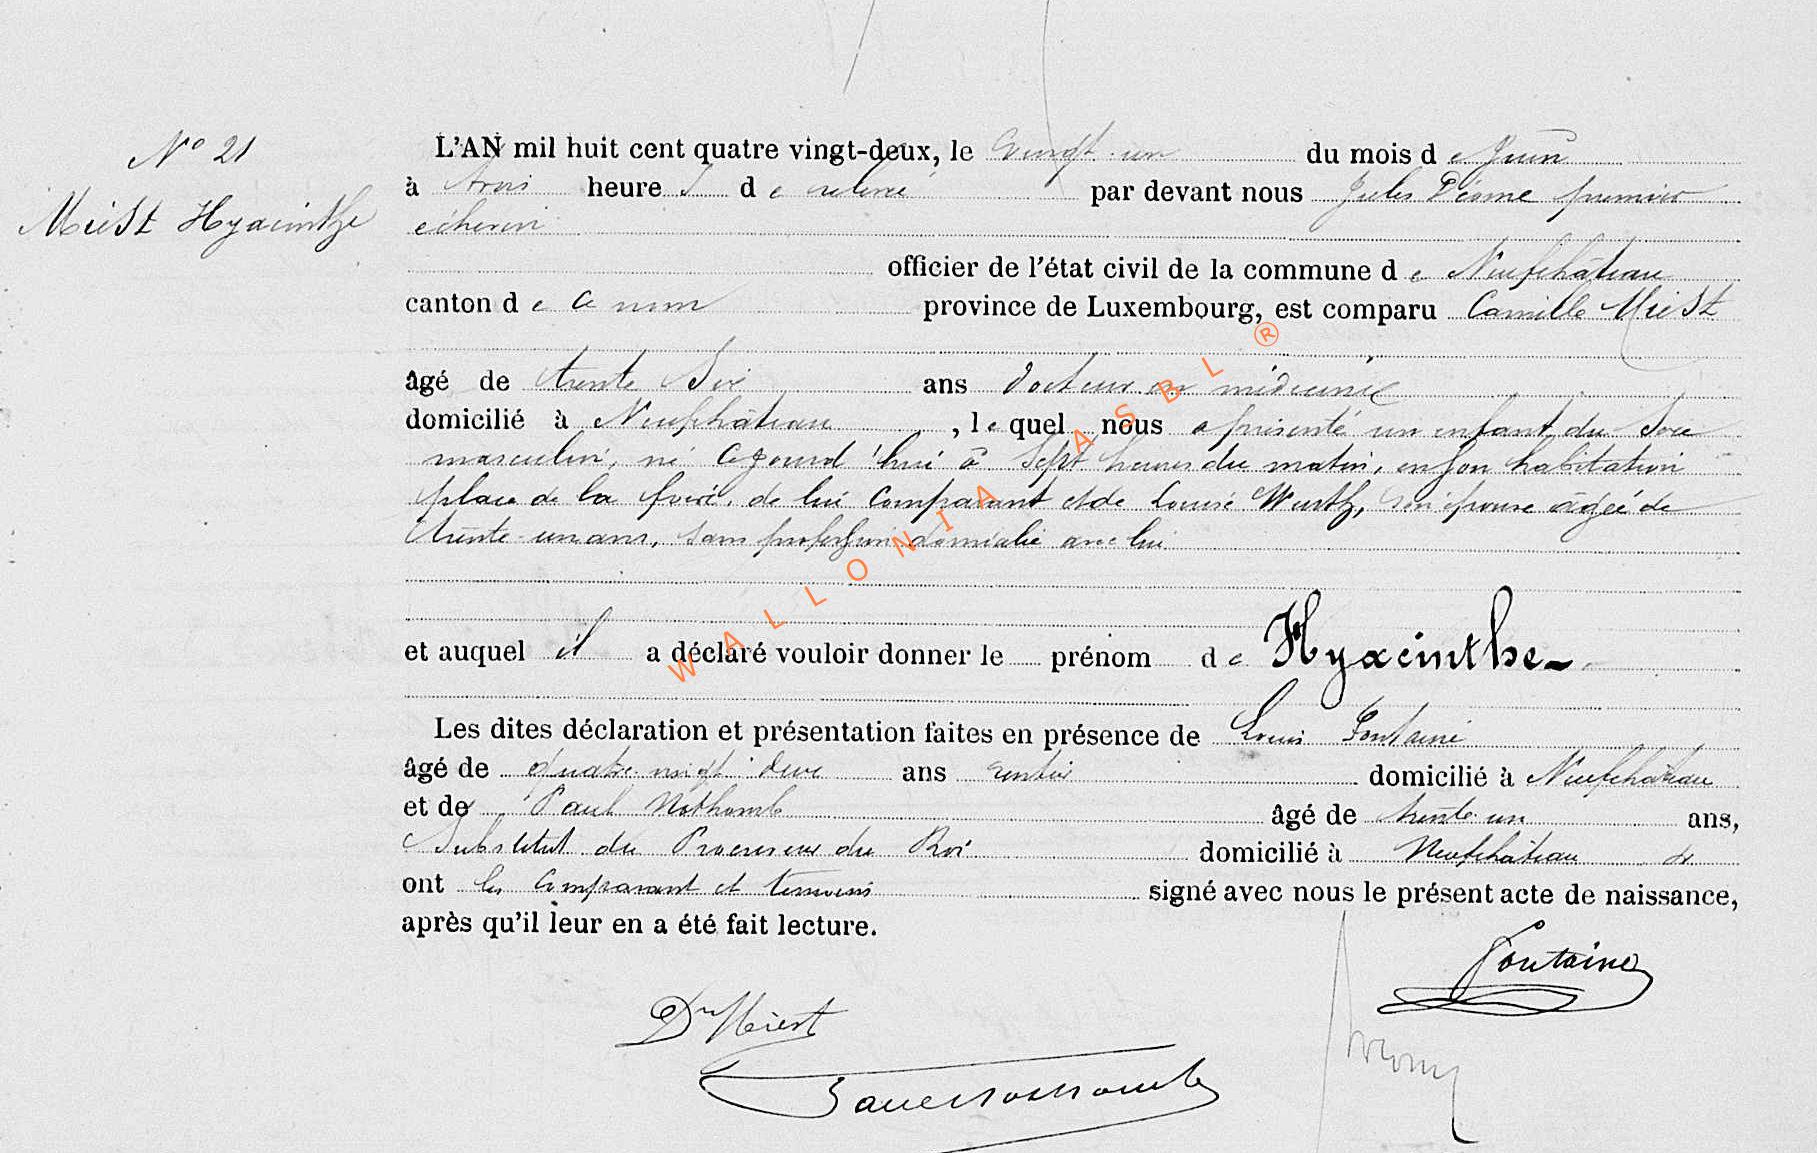 N° 21
Meist Hyacinthe
L'AN mil huit cent quatre vingt-deux, le vingt-un du mois de Juin
à trois heures de relevé par devant nous Jules Péome premier
échevin
officier de l'état civil de la commune de Neufchâteau
canton de ce nom province de Luxembourg, est comparu Camille Meist
âgé de trente Six ans docteur en médecine
domicilié à Neufchâteau, lequel nous a présenté un enfant du Sexe
masculin, né cejourd'hui à Sept heures du matin, en son habitation
place de la foire, de lui comparant et de Louise Wurth, son épouse âgée de
trente-un ans, sans profession domiciliée avec lui
et auquel il a déclaré vouloir donner le prénom de Hyacinthe
Les dites déclaration et présentation faites en présence de Louis Fontaine
âgé de quatre-vingt-deux ans rentier domicilié à Neufchâteau
et de Paul Nothomb âgé de trente-un ans,
Substitut du Procureur du Roi domicilié à Neufchâteau &
ont les comparant et témoins signé avec nous le présent acte de naissance,
après qu'il leur en a été fait lecture.
Fontaine
Dr Meist
Paul Nothomb
WALLONIA ASBL ®